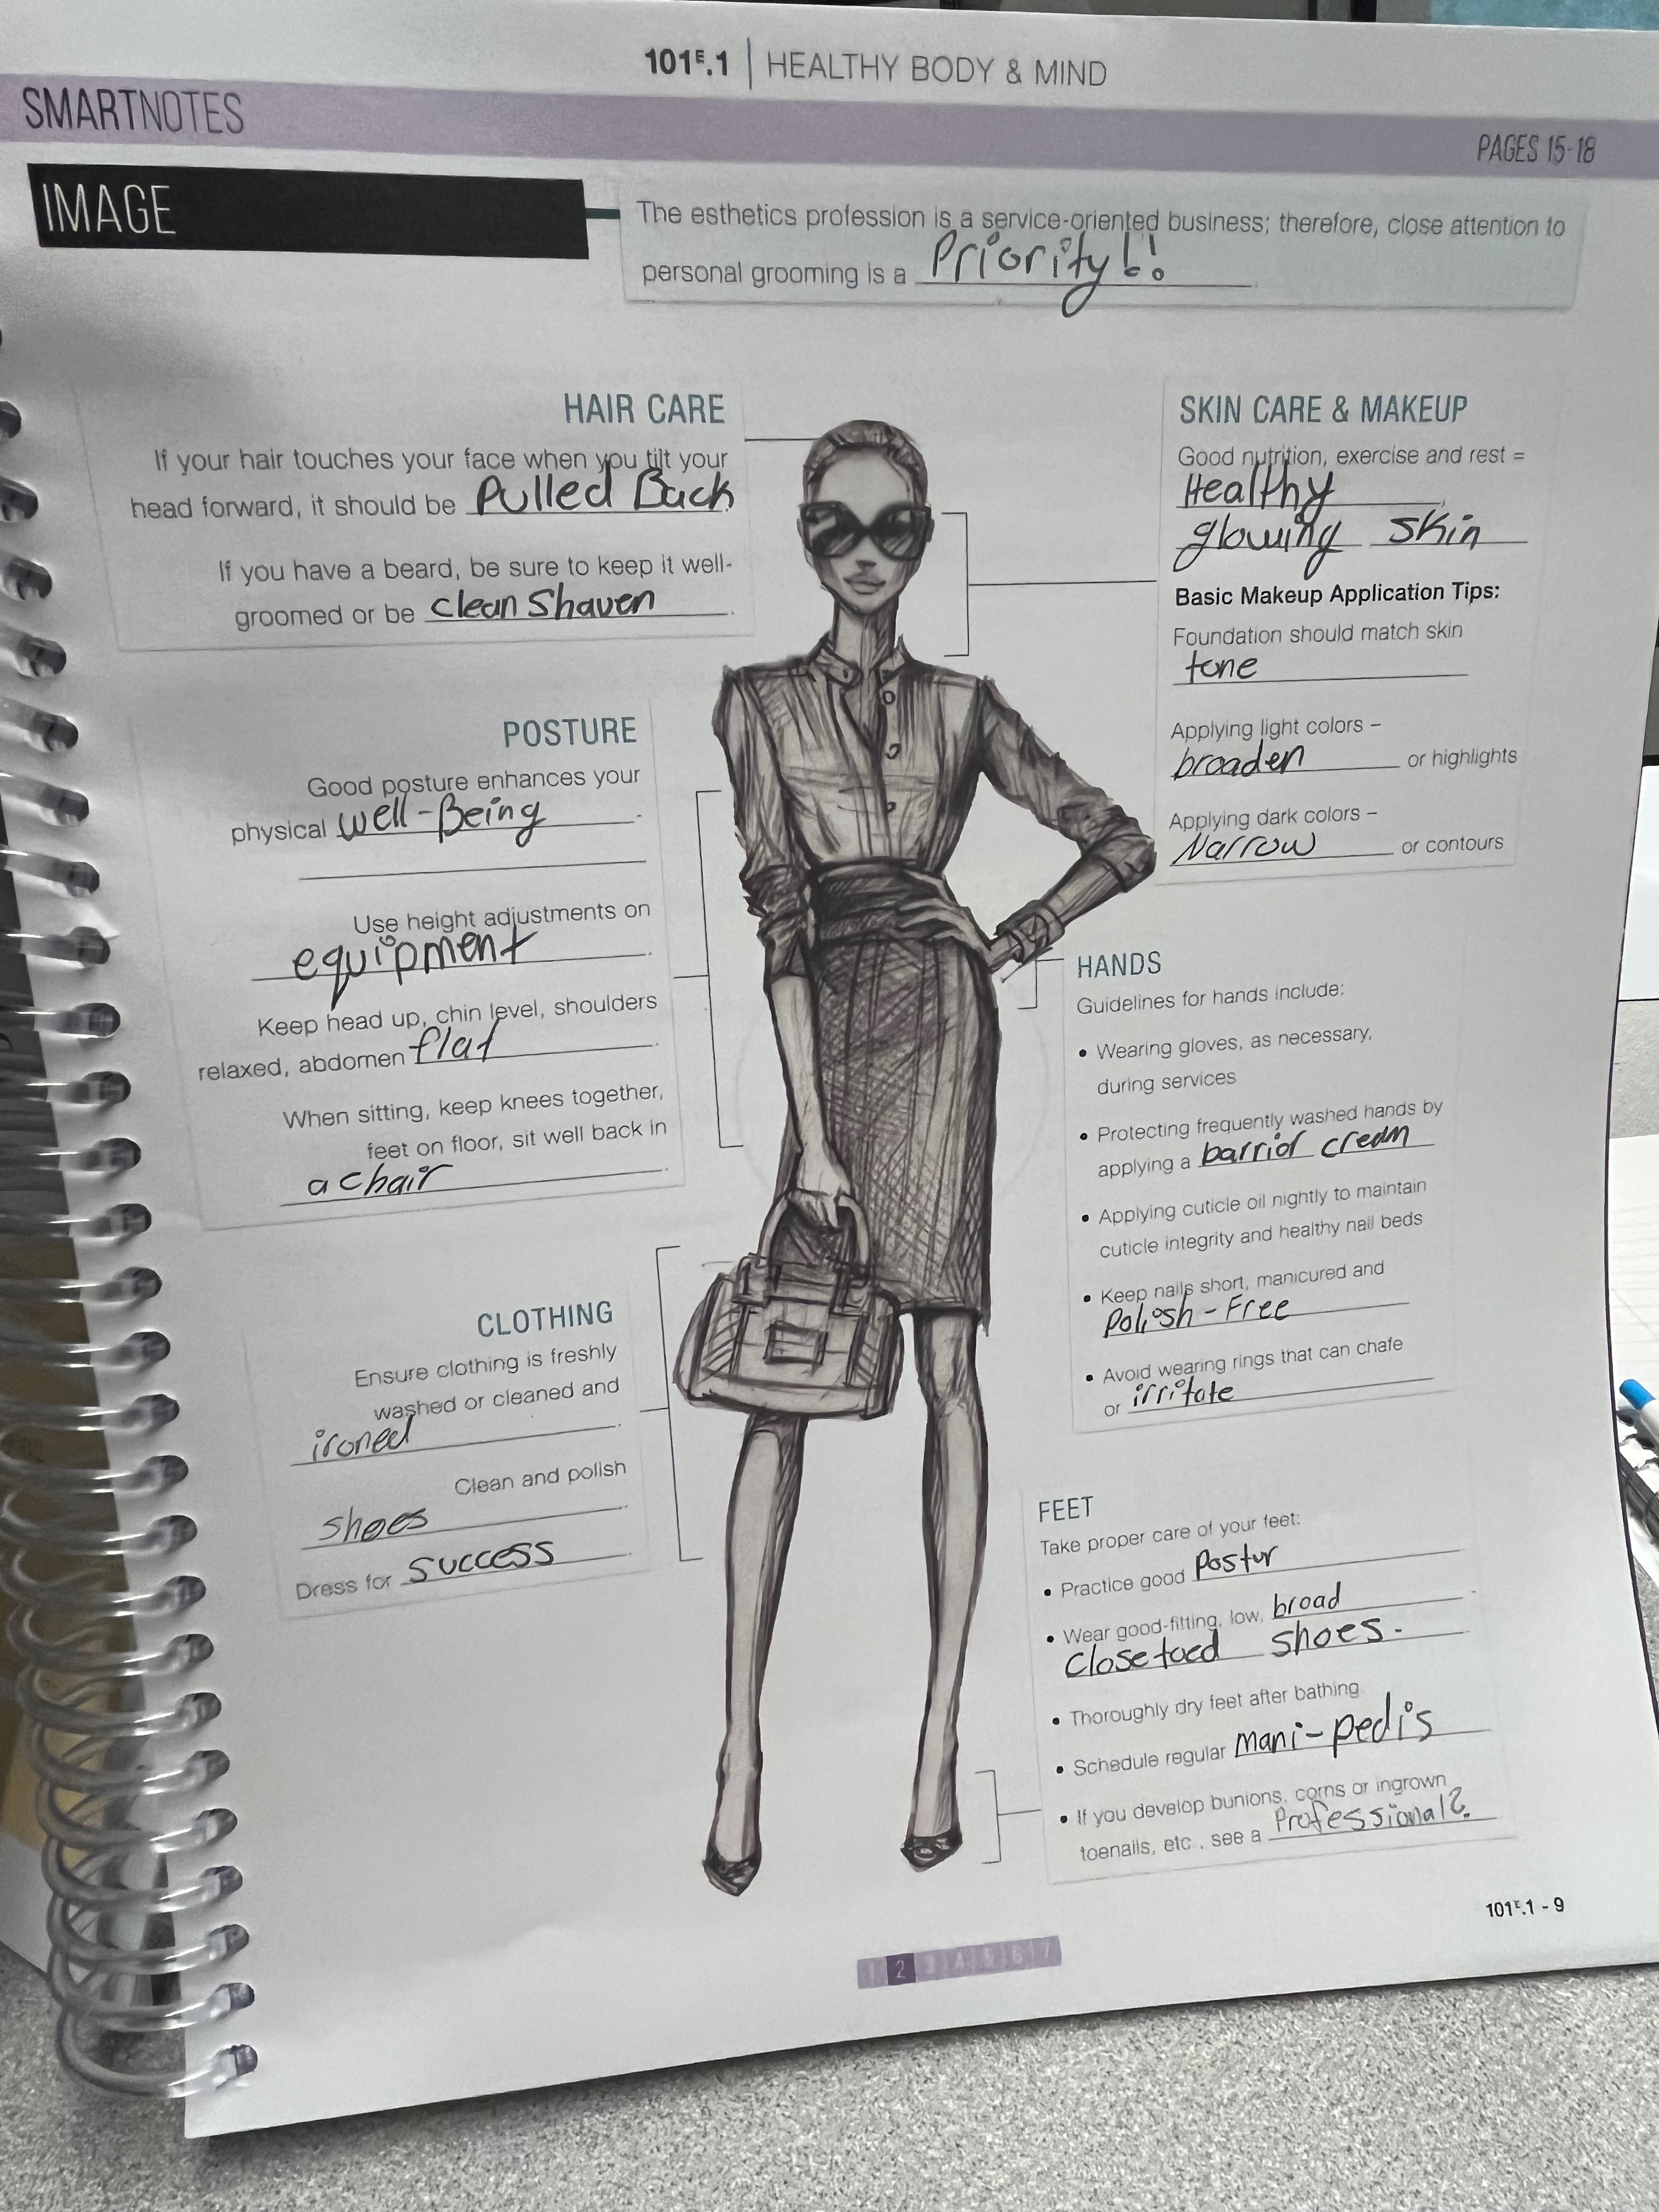 101ᴱ.1 | HEALTHY BODY & MIND
SMARTNOTES
PAGES 15-18
IMAGE
The esthetics profession is a service-oriented business; therefore, close attention to
personal grooming is a Priority!!
HAIR CARE
If your hair touches your face when you tilt your
head forward, it should be Pulled Back.
If you have a beard, be sure to keep it well-
groomed or be clean Shaven.
POSTURE
Good posture enhances your
physical well-Being.
Use height adjustments on
equipment.
Keep head up, chin level, shoulders
relaxed, abdomen flat.
When sitting, keep knees together,
feet on floor, sit well back in
a chair.
CLOTHING
Ensure clothing is freshly
washed or cleaned and
ironed.
Clean and polish
shoes.
Dress for success.
SKIN CARE & MAKEUP
Good nutrition, exercise and rest =
Healthy,
glowing skin
Basic Makeup Application Tips:
Foundation should match skin
tone
Applying light colors –
broaden or highlights
Applying dark colors –
Narrow or contours
HANDS
Guidelines for hands include:
• Wearing gloves, as necessary,
during services
• Protecting frequently washed hands by
applying a barrior cream
• Applying cuticle oil nightly to maintain
cuticle integrity and healthy nail beds
• Keep nails short, manicured and
Polish-Free
• Avoid wearing rings that can chafe
or irritate
FEET
Take proper care of your feet:
• Practice good Postur
• Wear good-fitting, low, broad
Closetoed shoes.
• Thoroughly dry feet after bathing
• Schedule regular mani-pedis
• If you develop bunions, corns or ingrown
toenails, etc., see a Professional?
101ᴱ.1 - 9
1 2 3 4 5 6 7